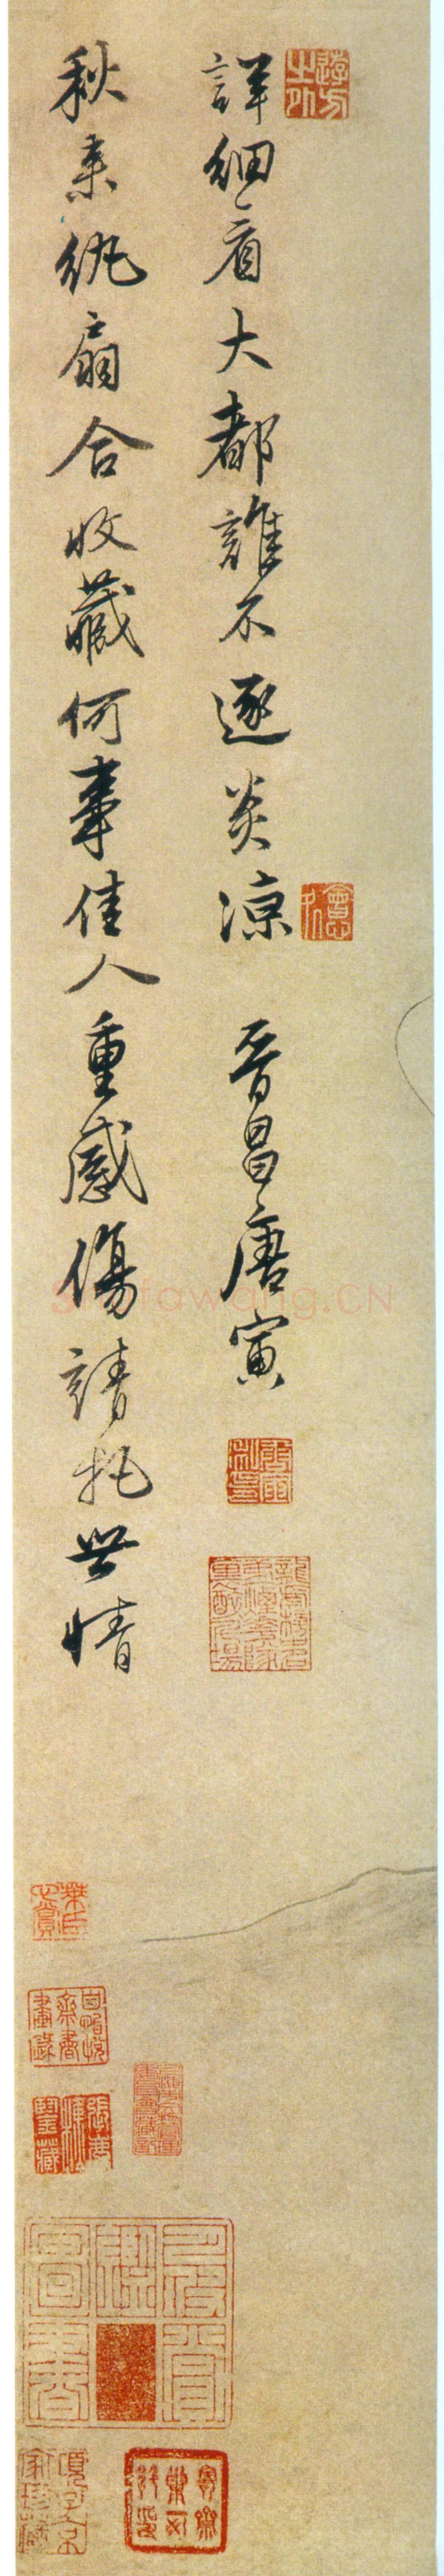 秋来紈扇合收藏何事佳人重感傷請托世情
詳細看大都誰不逐炎涼 晉昌唐寅
項子京家珍藏
shufawang.CN